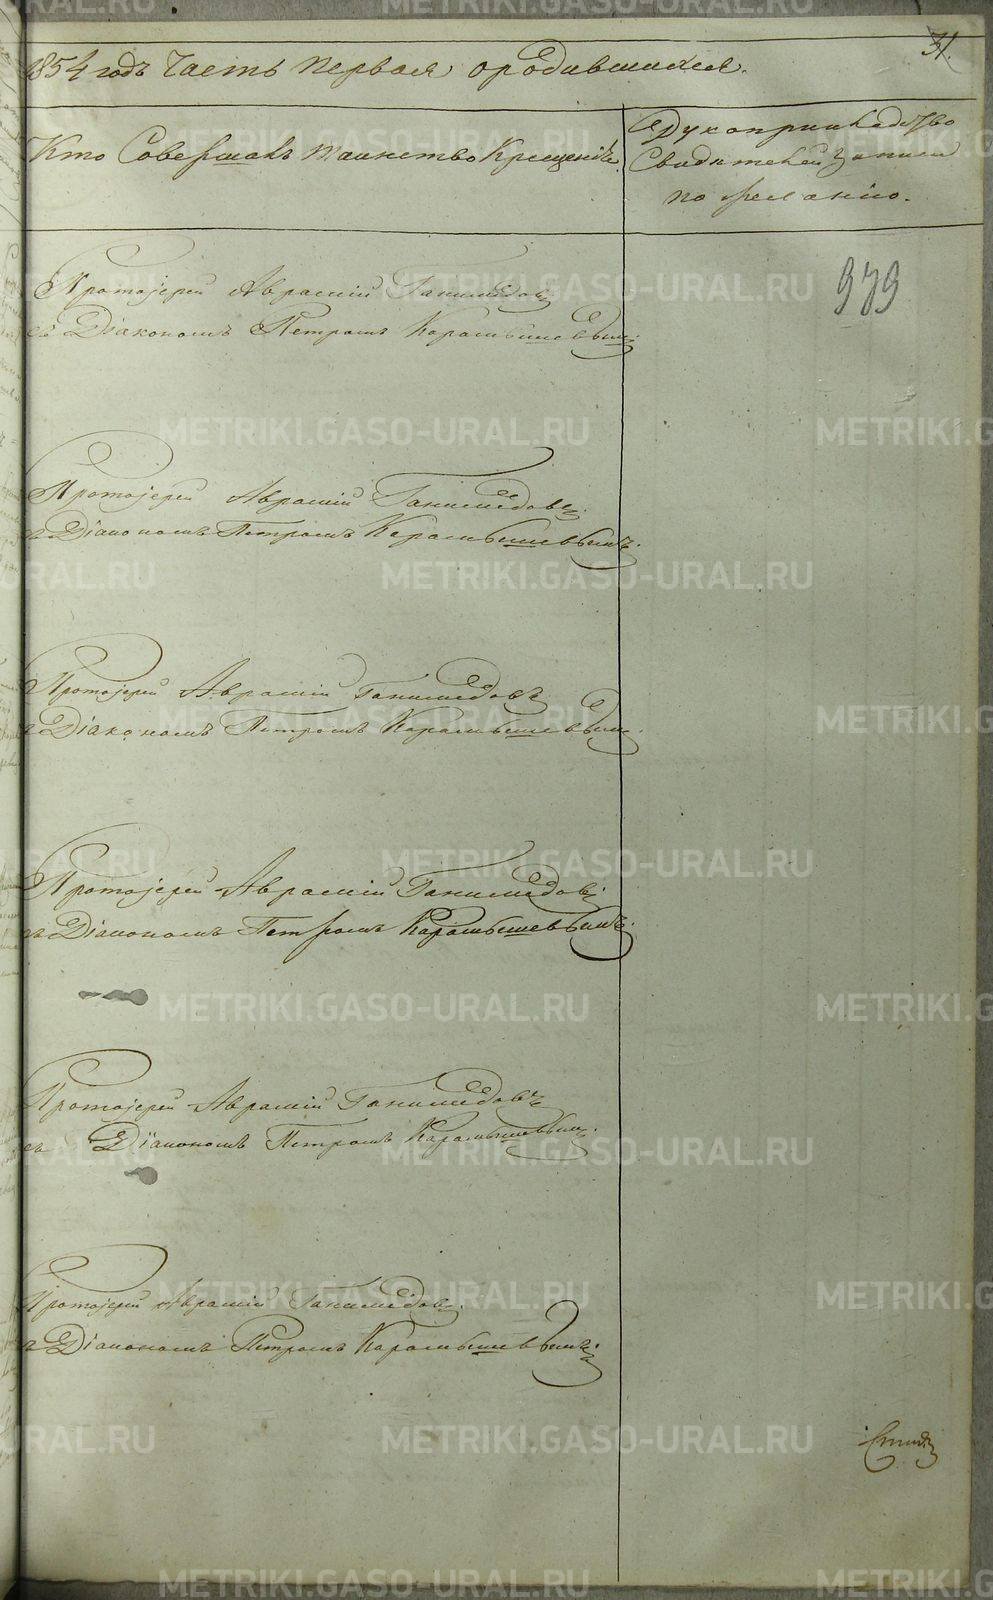 31.
1854 годъ Часть первая о родившихся.
Кто Совершалъ таинство Крещенія.
Рукоприкладство
Свидетелей записи
по желанію.
979
Протоіерей Аврамій Ганимедовъ
съ Діакономъ Петромъ Карамышевымъ.
Протоіерей Аврамій Ганимедовъ.
съ Діакономъ Петромъ Карамышевымъ.
Протоіерей Аврамій Ганимедовъ
съ Діакономъ Петромъ Карамышевымъ.
Протоіерей Аврамій Ганимедовъ
съ Діакономъ Петромъ Карамышевымъ.
Протоіерей Аврамій Ганимедовъ
съ Діакономъ Петромъ Карамышевымъ.
Протоіерей Аврамій Ганимедовъ.
съ Діакономъ Петромъ Карамышевымъ.
METRIKI.GASO-URAL.RU